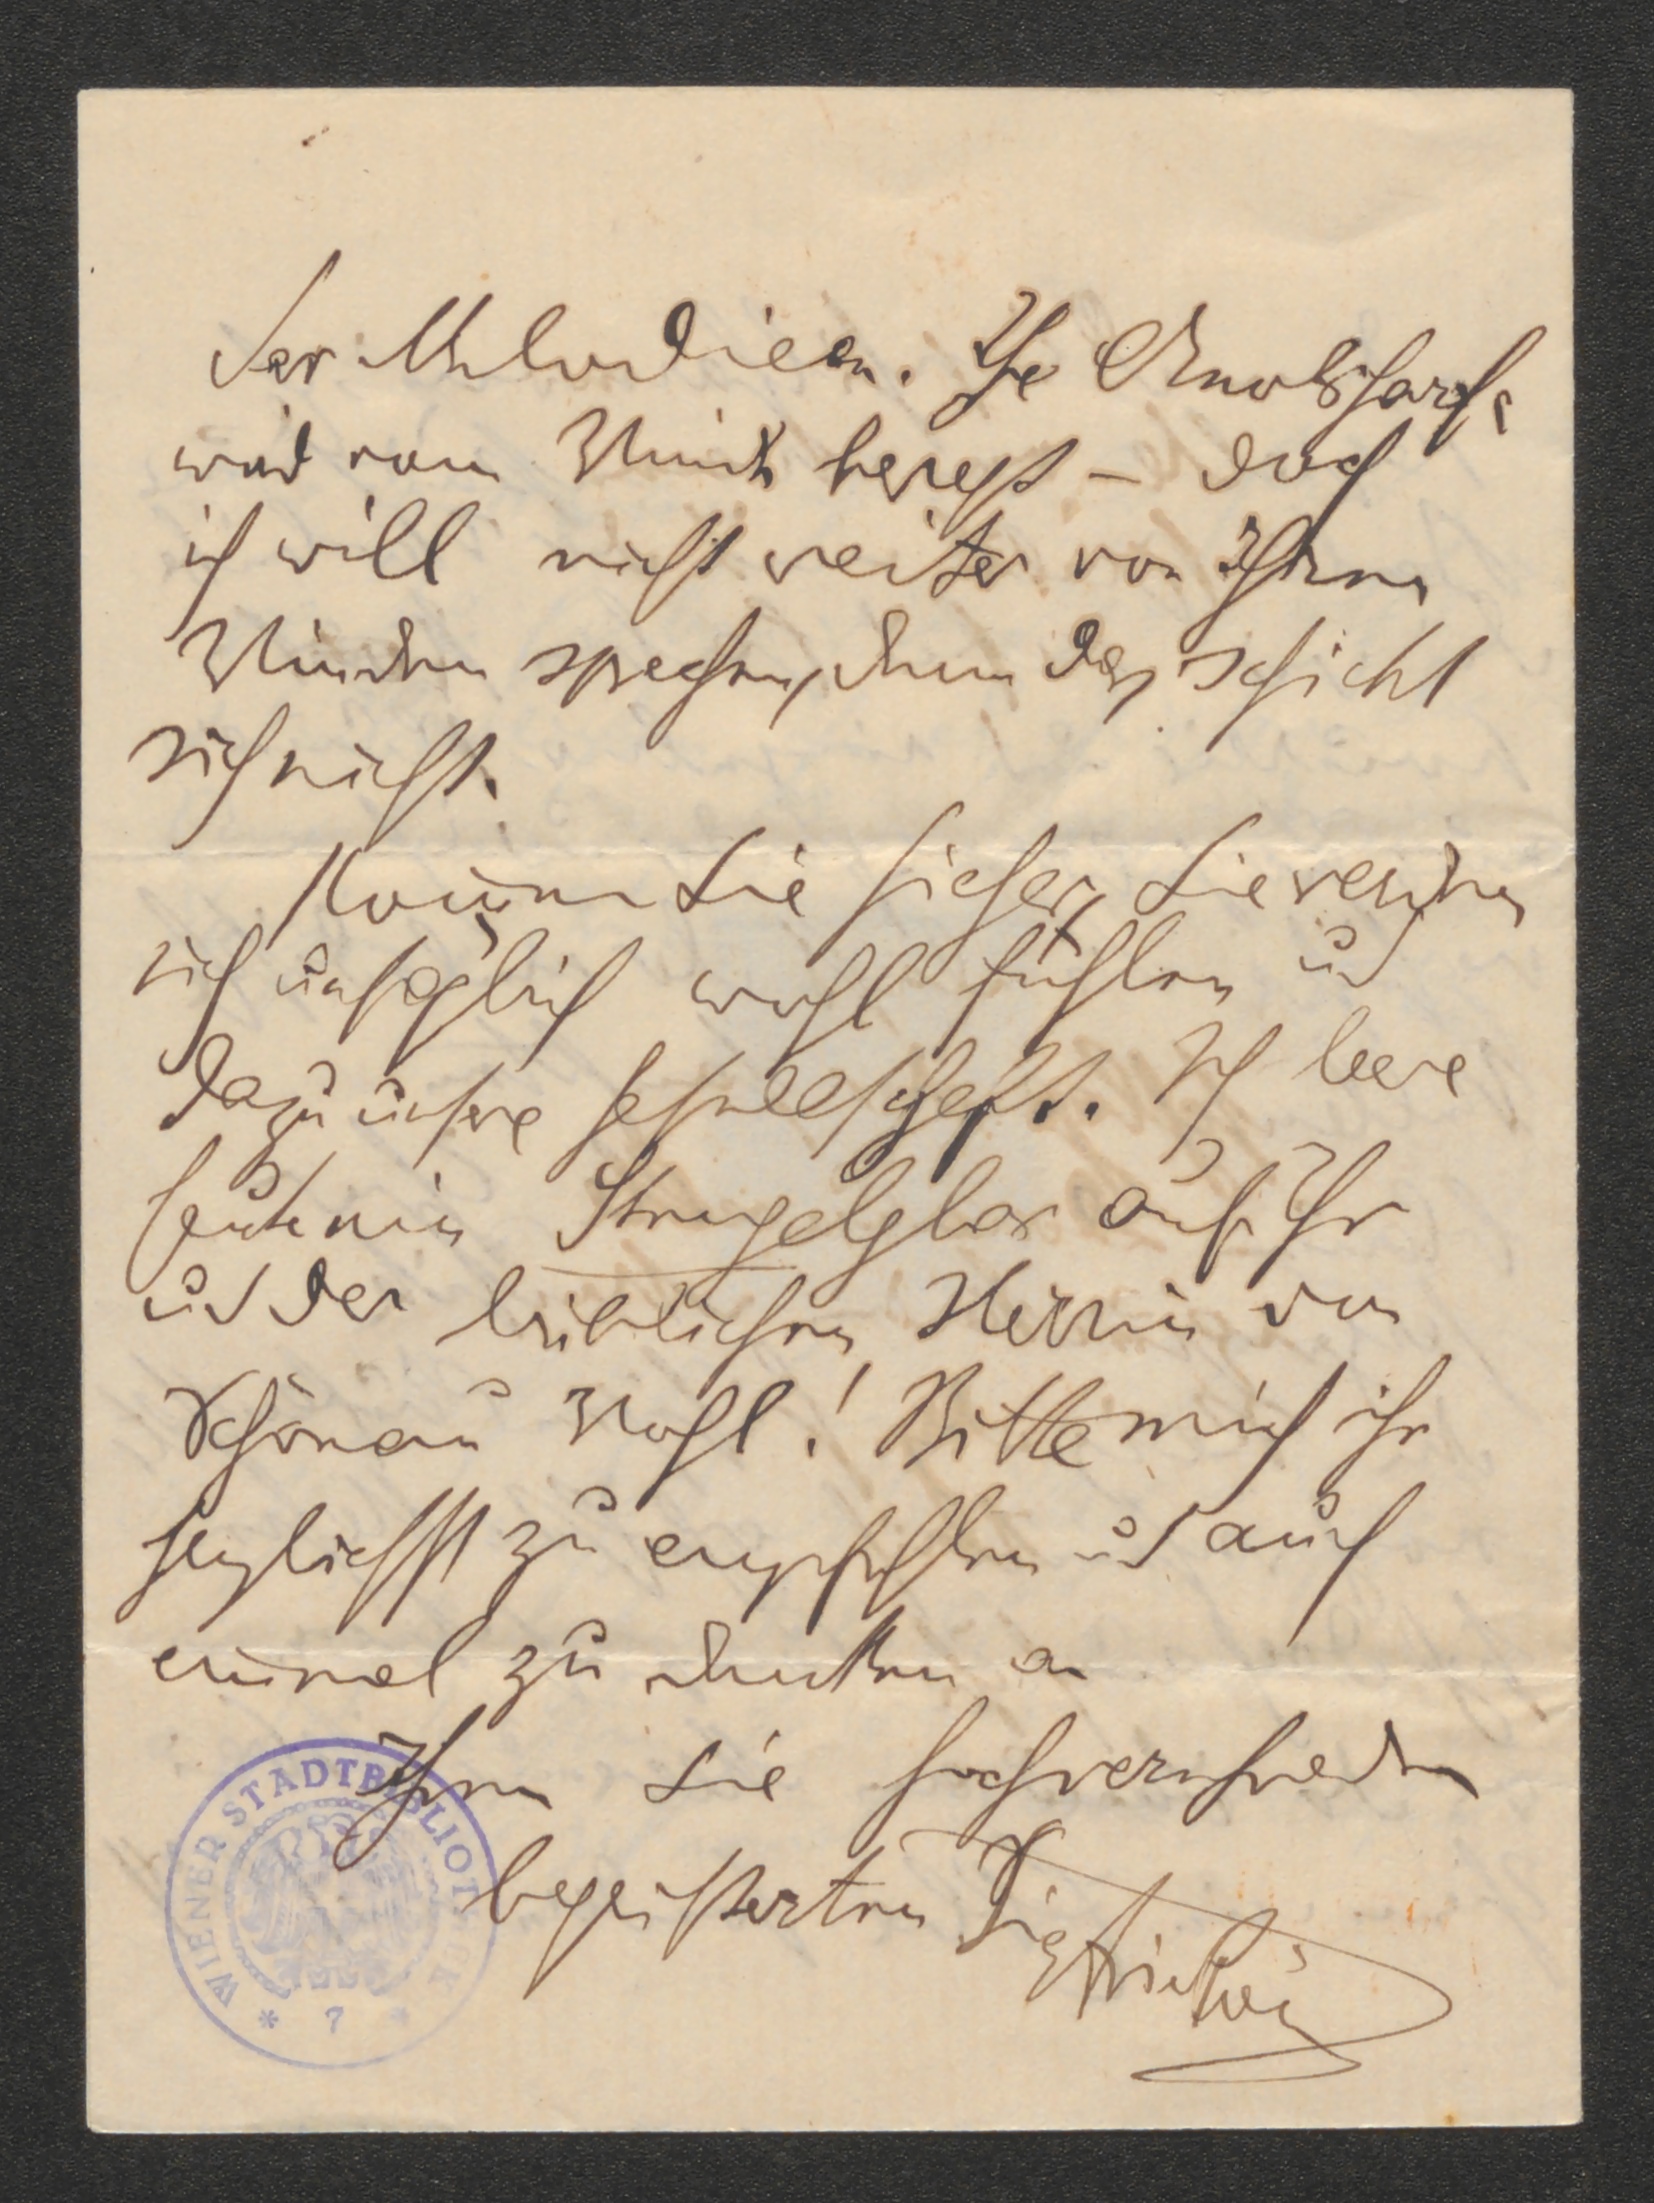 der Melodieen. Ihre Aeolsharfe
wird vom Wind bewegt – doch
ich will nicht weiter von Ihren
Winden sprechen, denn das schickt
sich nicht.
Kommen Sie hieher, Sie werden
sich unsäglich wohl fühlen und
dazu unsere Gesellschaft. Ich leere
heute ein Strugelglas auf Ihr
und der lieblichen Herrin von
Schönau Wohl! Bitte mich ihr
herzlichst zu empfehlen und auch
einmal zu denken an
Ihren Sie hochverehrenden
begeisterten
WIENER STADTBIBLIOTHEK
* 7 *